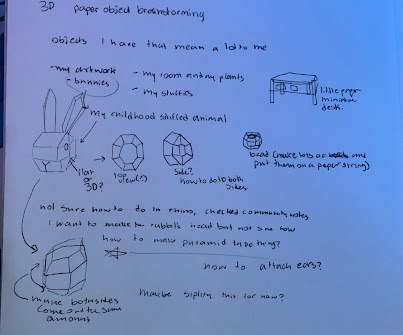 3D paper object brainstorming
objects I have that mean a lot to me
- my artwork
- bunnies
- my room and my plants
- my stuffies
little paper
miniature
desk.
my childhood stuffed animal
flat
or
3D?
top
view(?)
Side?
how to do to both
sides
bead (make lots of and
put them on a paper string)
not sure how to do in rhino, checked community notes
I want to make the rabbits head but not sure how
how to make pyramid type thing?
how to attach ears?
make both sides
come out the same
amount
Maybe siplify this for now?